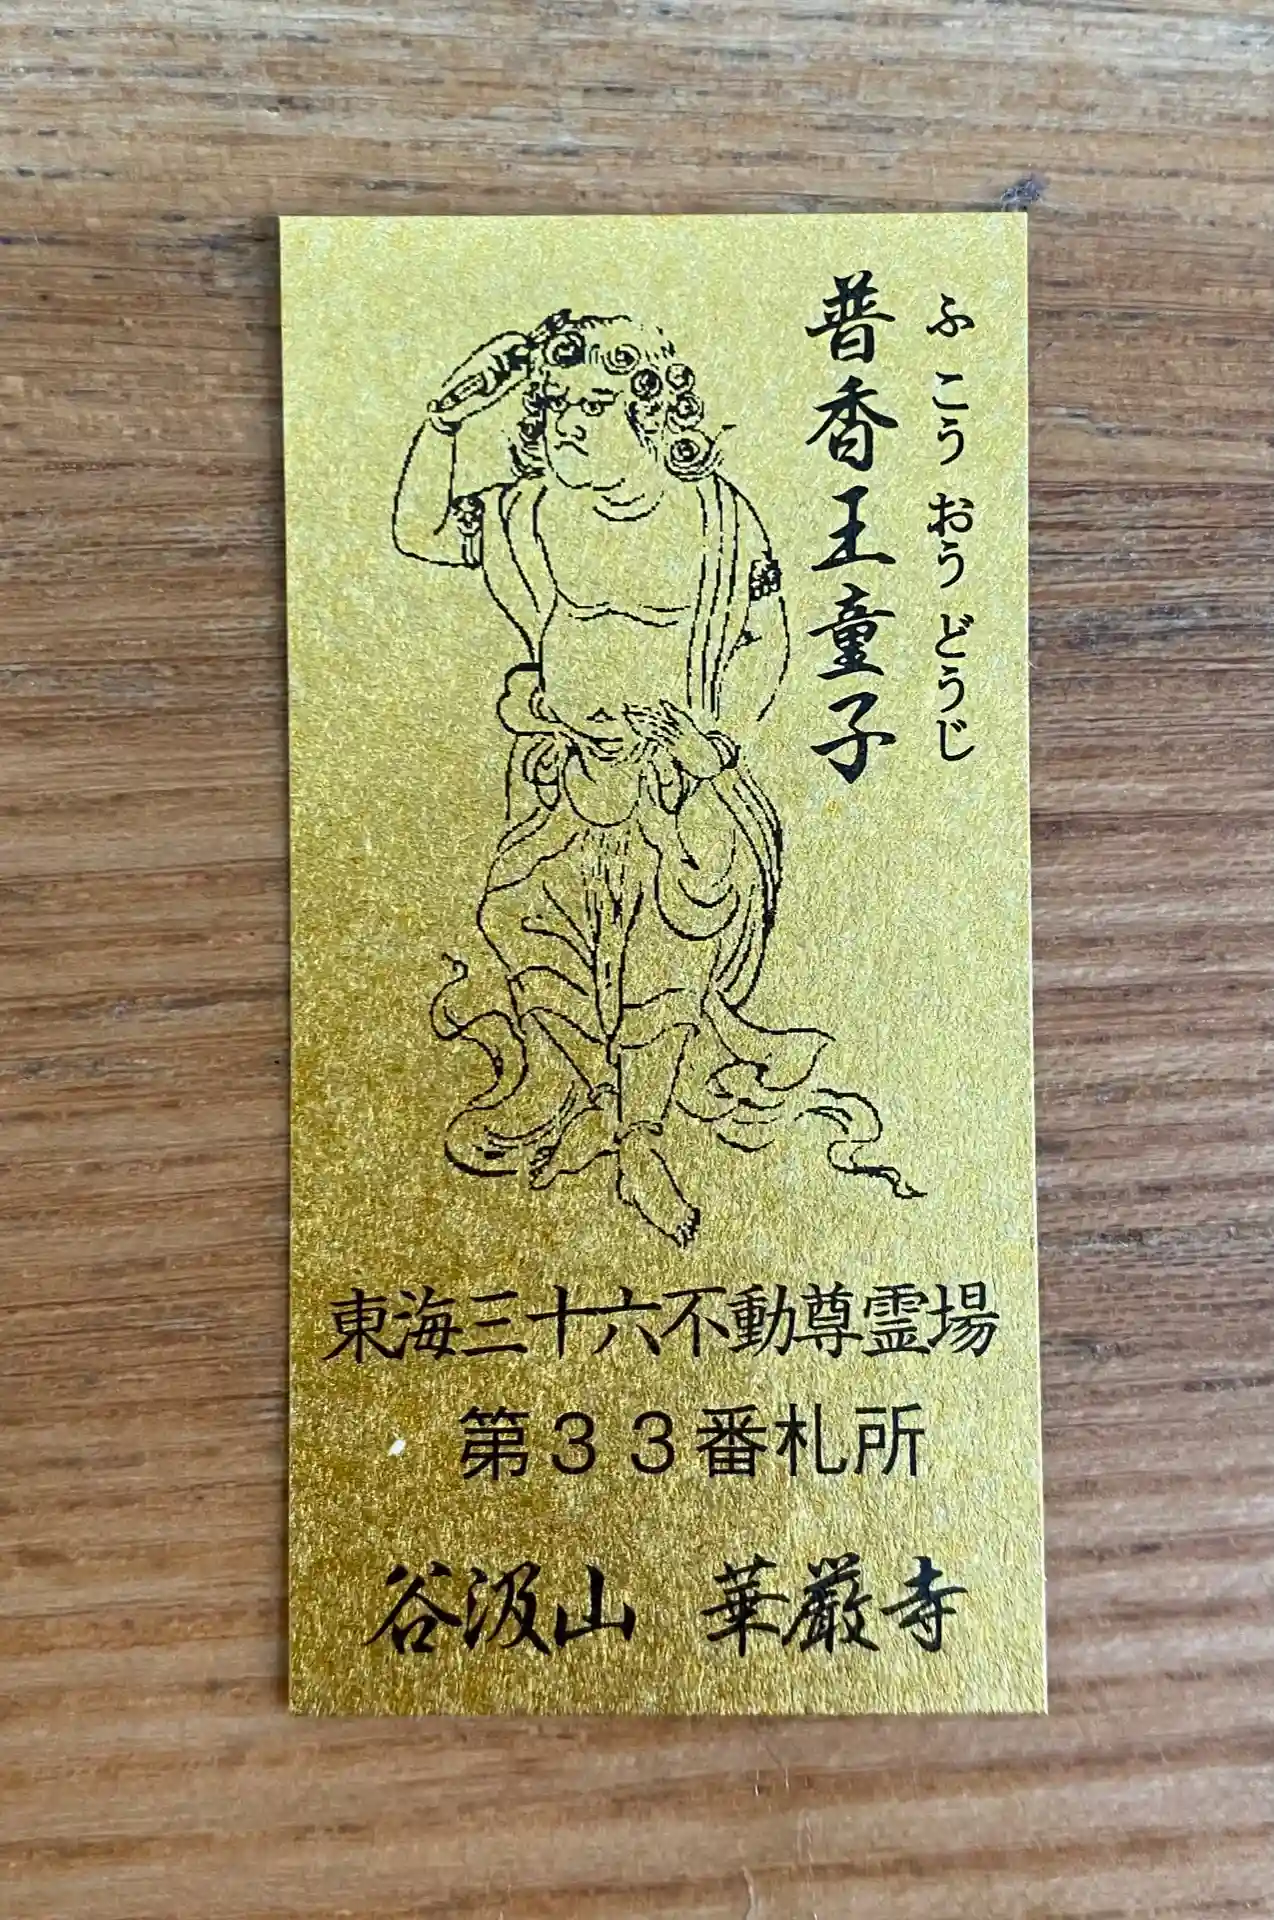 ふこうおうどうじ
普香王童子
東海三十六不動尊霊場
第３３番札所
谷汲山 華厳寺